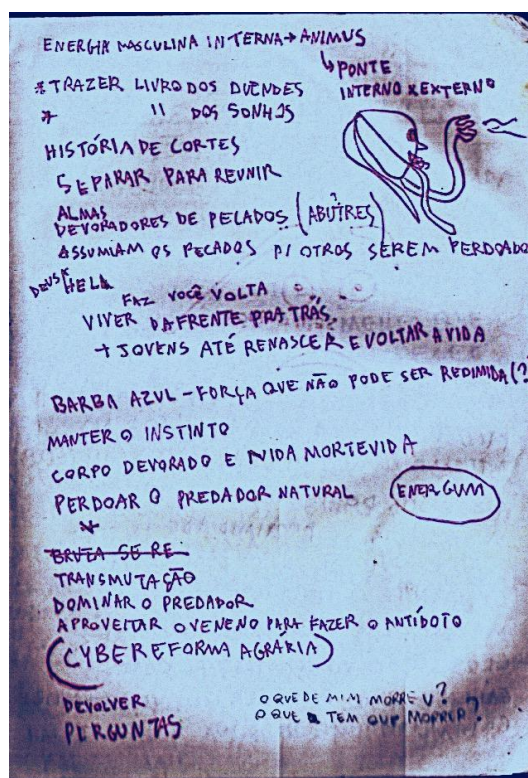 ENERGIA MASCULINA INTERNA → ANIMUS
↳ PONTE
INTERNO X EXTERNO
* TRAZER LIVRO DOS DUENDES
* " DOS SONHOS
HISTÓRIA DE CORTES
SEPARAR PARA REUNIR
ALMAS
DEVORADORES DE PECADOS (ABUTRES)
?
ASSUMIAM OS PECADOS P/ OTROS SEREM PERDOADO
DEUSA HELA
FAZ VOCÊ VOLTA
VIVER DA FRENTE PRA TRÁS
+ JOVENS ATÉ RENASCER E VOLTAR A VIDA
BARBA AZUL - FORÇA QUE NÃO PODE SER REDIMIDA (?
MANTER O INSTINTO
CORPO DEVORADO E VIDA MORTE VIDA
PERDOAR O PREDADOR NATURAL
ENERGUM
*
BRUTA SE RE
TRANSMUTAÇÃO
DOMINAR O PREDADOR
APROVEITAR O VENENO PARA FAZER O ANTÍDOTO
(CYBEREFORMA AGRÁRIA)
DEVOLVER
PERGUNTAS
O QUE DE MIM MORREU?
O QUE TEM QUE MORRER?